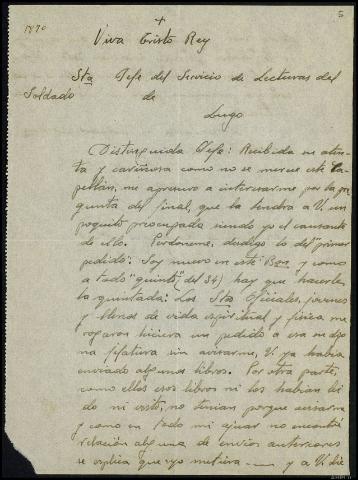 5
1870
+
Viva Cristo Rey
Sta Jefe del Servicio de Lecturas del
Soldado de
Lugo
Distinguida Jefe: Recibida su aten-
ta y cariñosa como no se merece este Ca-
pellán, me apresuro a interesarme por la pre
gunta del final, que la tendrá a V. un
poquito preocupada siendo yo el causante
de ello. Perdóneme, desdigo lo del "primer
pedido". Soy nuevo en este Bon y como
a todo "quinto" (del 34) hay que hacerle
la quintada. Los Sres Oficiales, jóvenes
y llenos de vida espiritual y física me
rogaron hiciera un pedido a esa su dig
na Jefatura sin avisarme, V. ya había
enviado algunos libros. Por otra parte,
como ellos esos libros ni los habían leí
do ni visto, no tenían porque avisarme
y como en todo mi ajuar no encontré
relación alguna de envíos anteriores
se explica que yo metiera ..... y a V. le